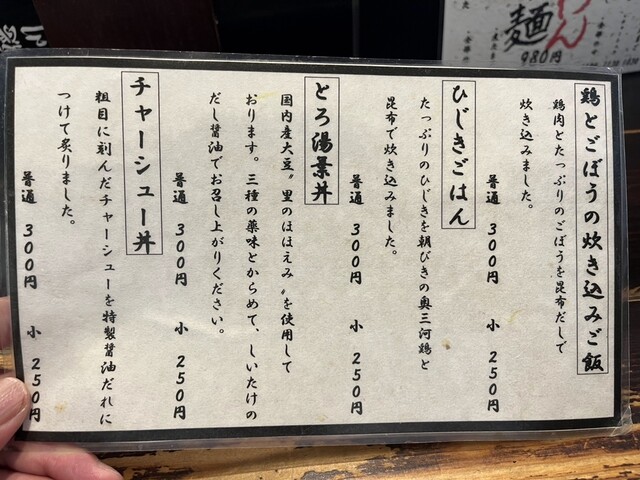 鶏とごぼうの炊き込みご飯
鶏肉とたっぷりのごぼうを昆布だしで
炊き込みました。
普通 300円 小 250円
ひじきごはん
たっぷりのひじきを朝びきの奥三河鶏と
昆布で炊き込みました。
普通 300円 小 250円
とろ湯葉丼
国内産大豆〝里のほほえみ〟を使用して
おります。三種の薬味とからめて、しいたけの
だし醤油でお召し上がりください。
普通 300円 小 250円
チャーシュー丼
粗目に刻んだチャーシューを特製醤油だれに
つけて炙りました。
普通 300円 小 250円
麺
980円